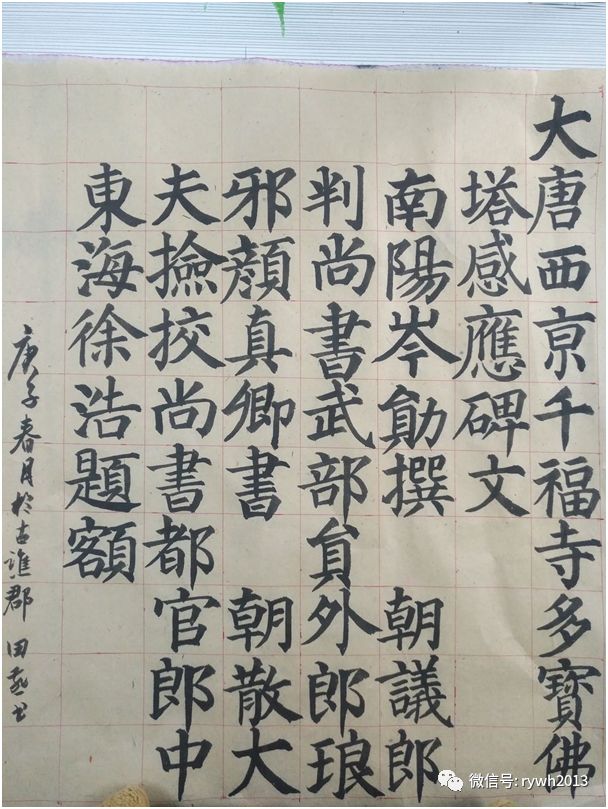 大唐西京千福寺多寶佛
塔感應碑文
南陽岑勛撰 朝議郎
判尚書武部員外郎琅
邪顏真卿書 朝散大
夫撿挍尚書都官郎中
東海徐浩題額
庚子春月於古譙郡 田 書
微信号: rywh2013